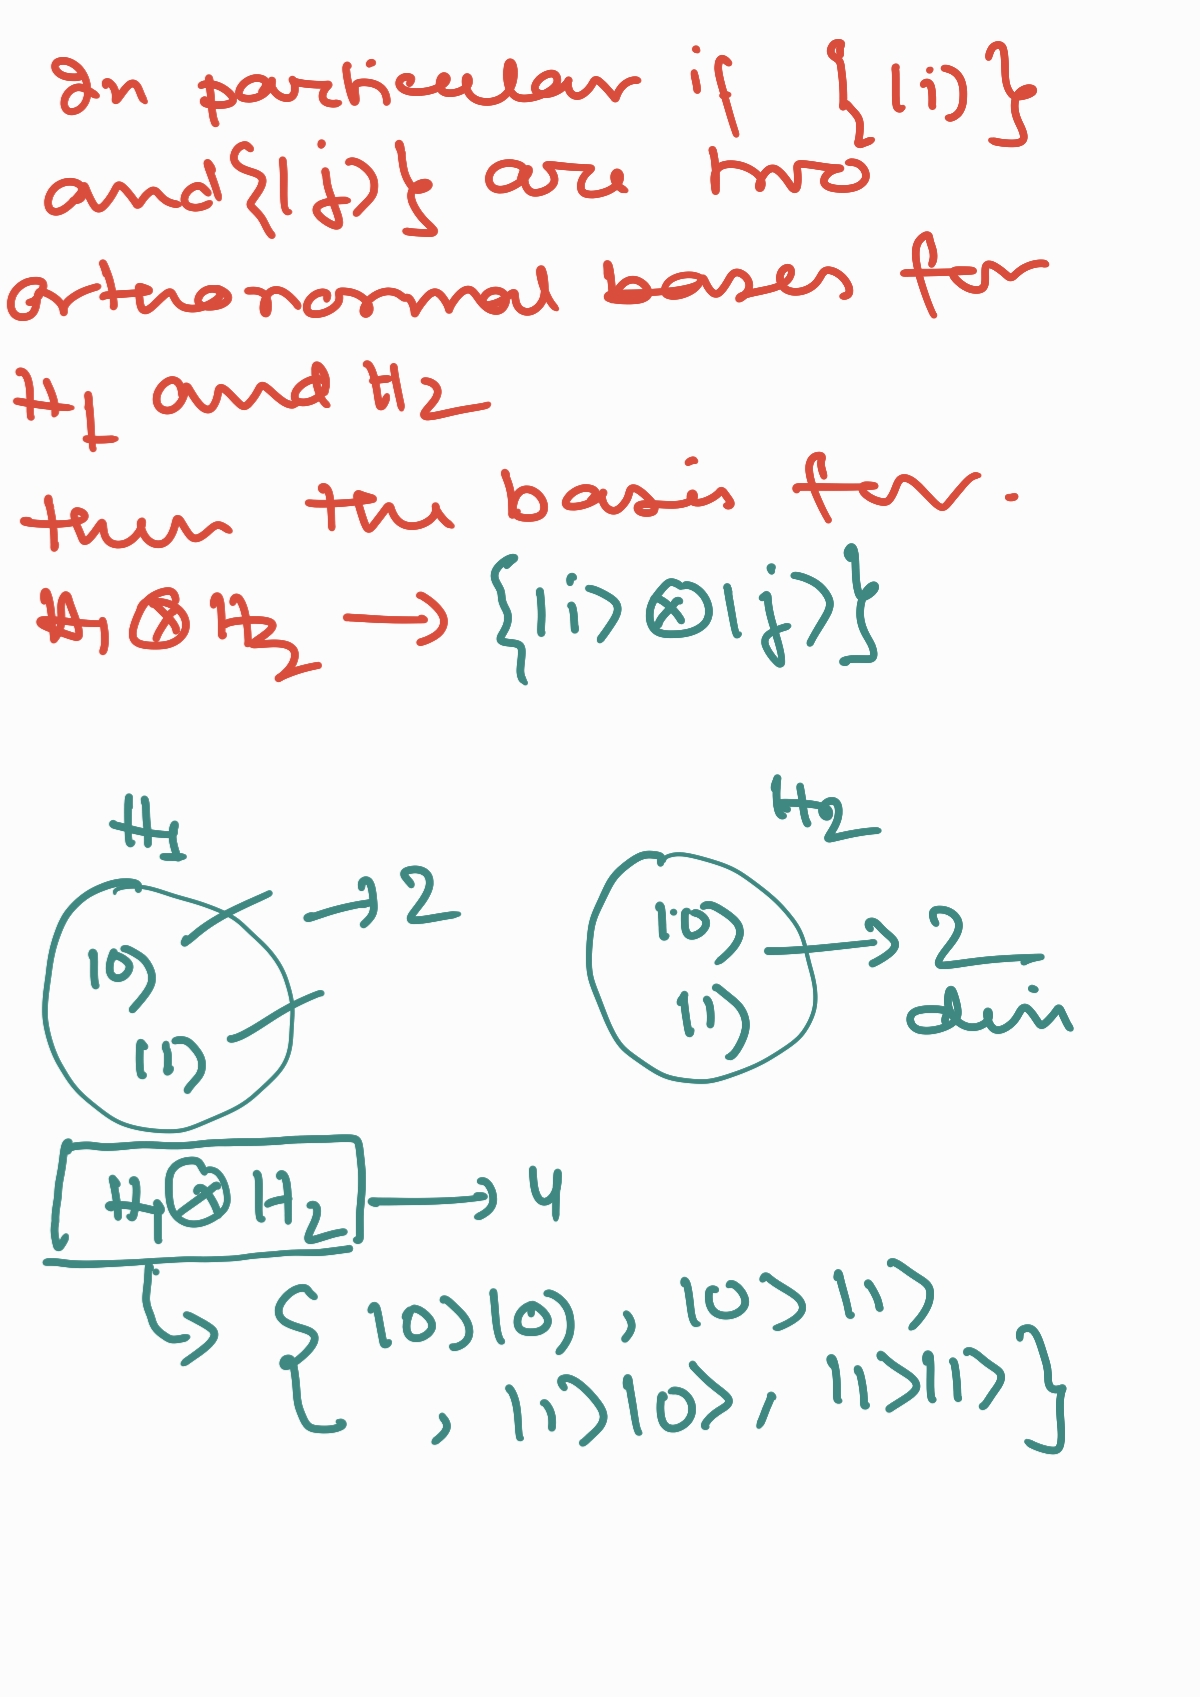 In particular if {|i⟩}
and {|j⟩} are two
orthonormal bases for
H₁ and H₂
then the basis for
H₁ ⊗ H₂ → {|i⟩ ⊗ |j⟩}
H₁
H₂
→ 2
|0⟩
|1⟩
|0⟩ → 2
|1⟩ dim
H₁ ⊗ H₂ → 4
↳ { |0⟩|0⟩ , |0⟩|1⟩
, |1⟩|0⟩ , |1⟩|1⟩ }